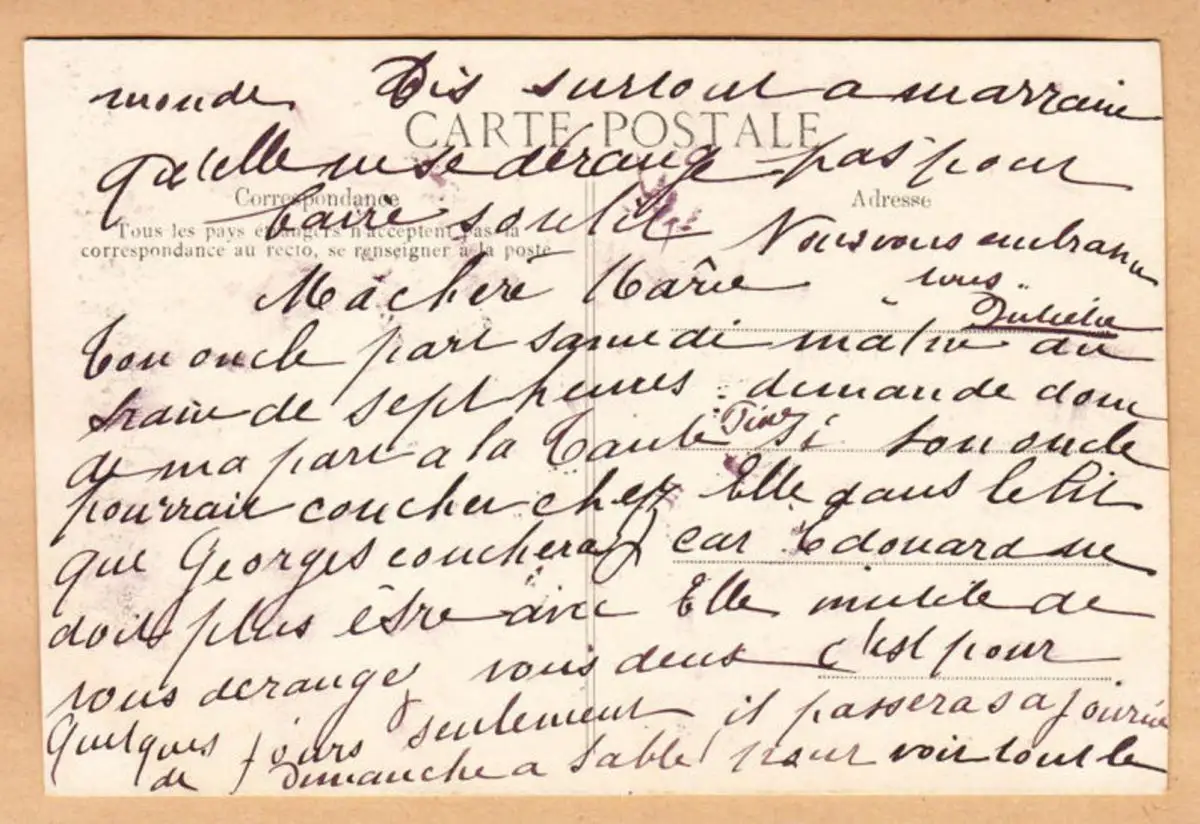 monde. Dis surtout a marraine
CARTE POSTALE
qu'elle ne se dérange pas pour
Correspondance
Adresse
Tous les pays étrangers n'acceptent pas la
correspondance au recto, se renseigner à la poste
faire son lit. Nous vous embrassons
tous
Juliette
Ma chère Marie
Ton oncle part samedi matin au
train de sept heures demande donc
de ma part a la Tante Tine si ton oncle
pourrait coucher chez Elle dans le lit
que Georges couchera car Edouard ne
doit plus être avec Elle inutile de
vous déranger vous deux c'est pour
quelques jours seulement il passera sa journée
de Dimanche a Sablé pour voir tout le